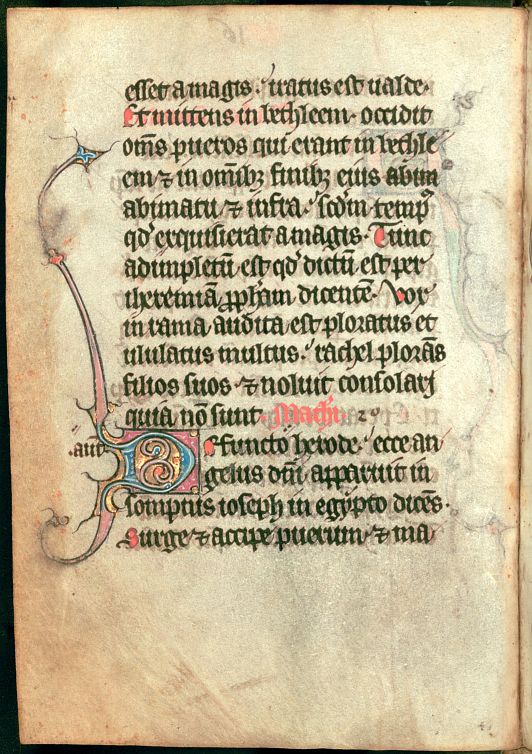 esset a magis. iratus est ualde.
Et mittens in bethleem. occidit
om̄s pueros qui erant in bethle
em ⁊ in om̄ibꝫ finibꝫ eius abim
abimatu ⁊ infra. scdm temp᷒
qd̓ exquisierat a magis. Tunc
adimpletū est qd̓ dictū est per
iheremiā ꝓph̄am dicentē. Vox
in rama audita est ploratus et
ululatus multus. rachel plorās
filios suos. ⁊ noluit consolari
quia nō sunt. Mathi.
Defuncto herode. ecce an
gelus dn̄i apparuit in
sompnis ioseph in egypto dicēs.
Surge ⁊ accipe puerum. ⁊ ma